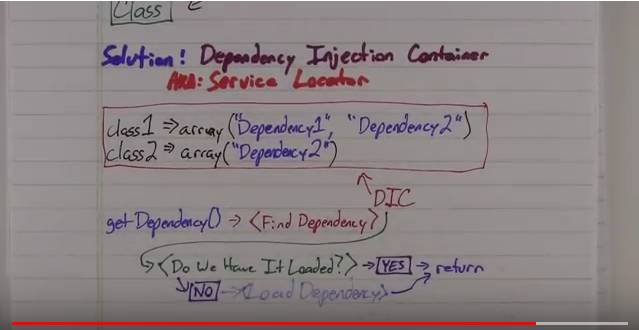 Class E
Solution! Dependency Injection Container
AKA: Service Locator
class1 => array("Dependency1", "Dependency2")
class2 => array("Dependency2")
DIC
getDependency() → <Find Dependency>
<Do We Have It Loaded?> → YES → return
NO → <Load Dependency>